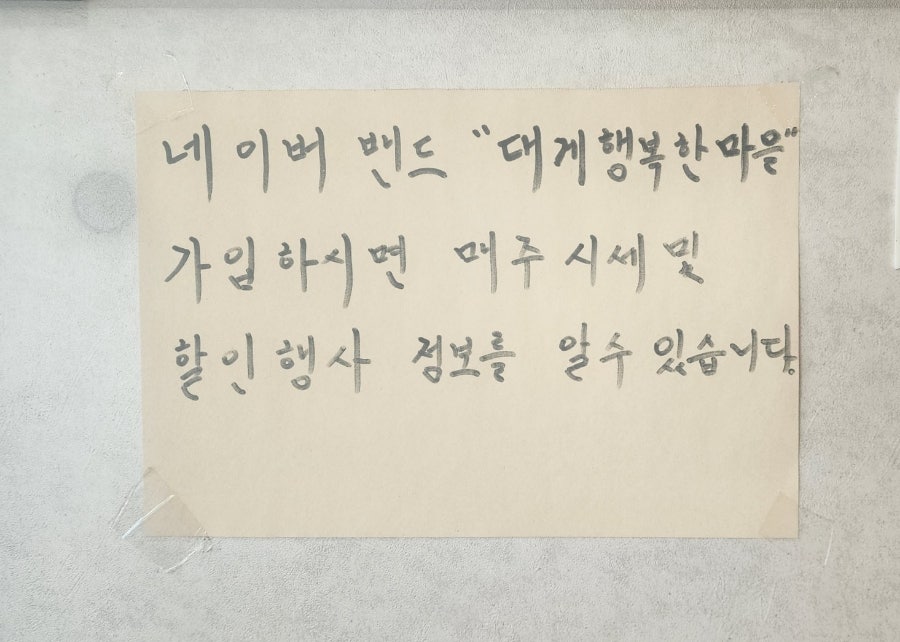 네이버 밴드 "대게행복한마을"
가입하시면 매주 시세 및
할인행사 정보를 알수 있습니다.